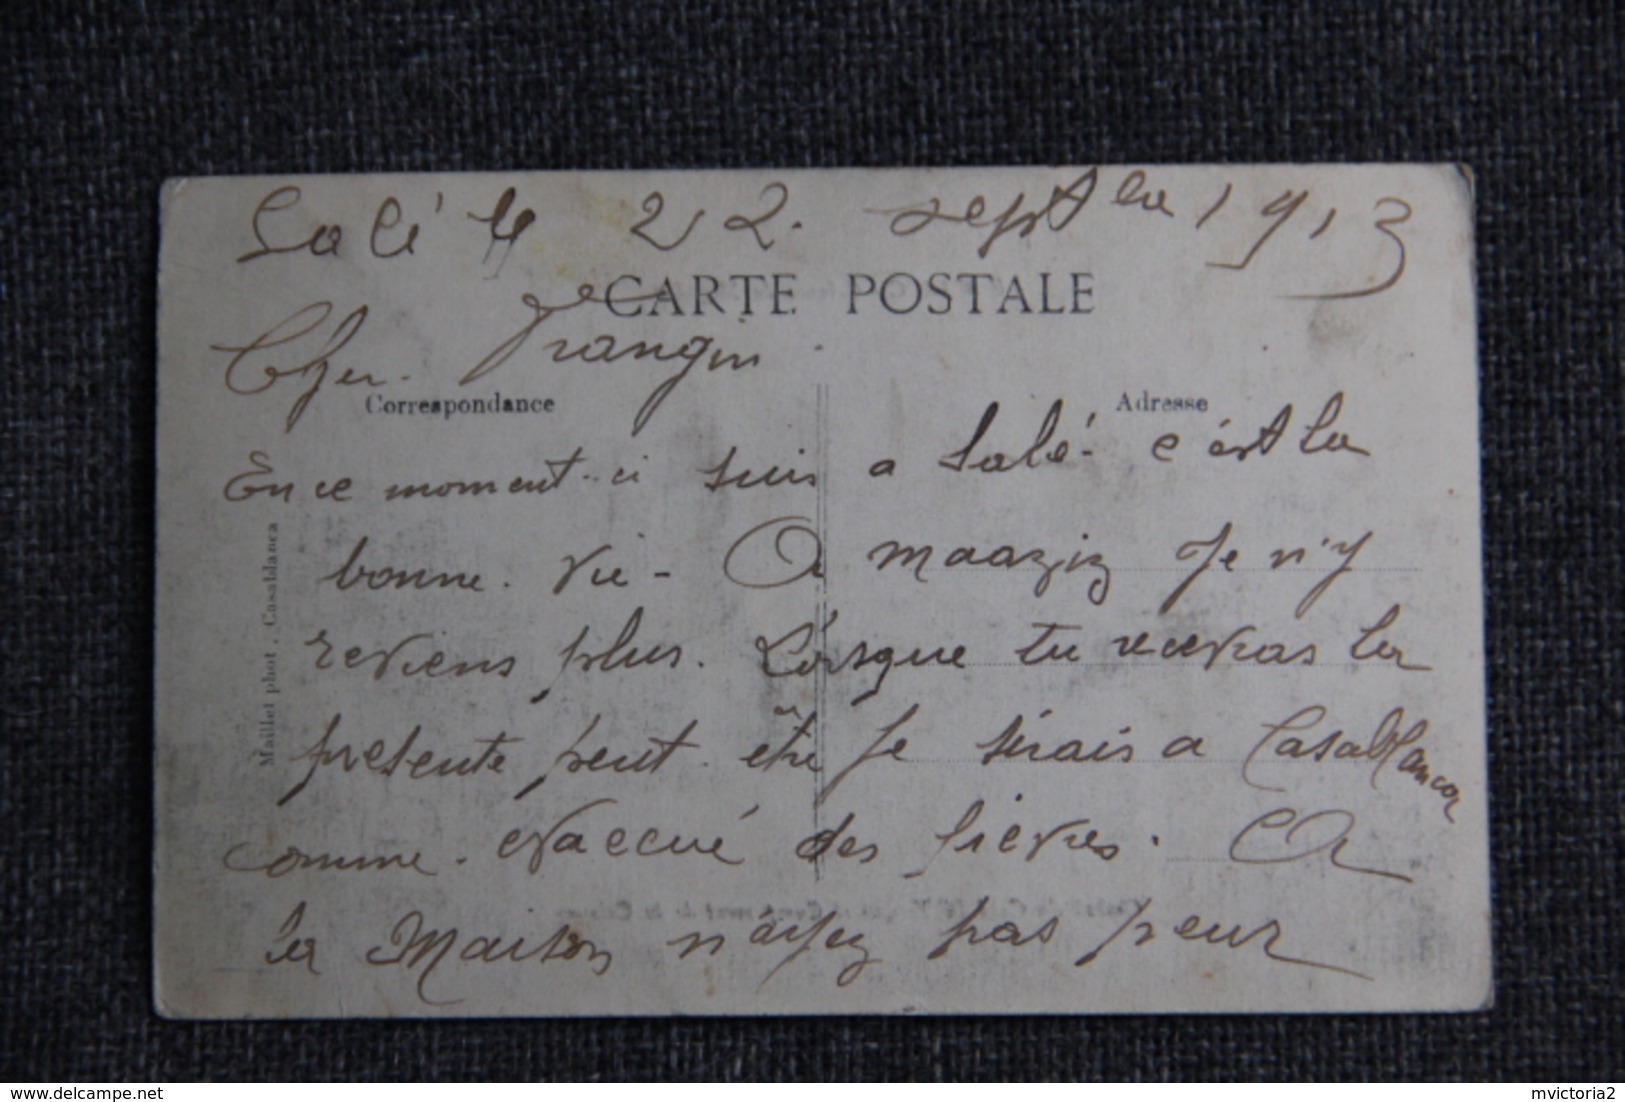 Salé le 22 septbre 1913
CARTE POSTALE
Cher frangin
Correspondance
Adresse
En ce moment-ci suis a Salé c'est la
bonne vie - A maaziz Je n'y
reviens plus. Lorsque tu recevras la
présente peut être Je serais a Casablanca
comme évaccué des fièvres. A
la Maison n'ayez pas peur
Maillet phot. Casablanca
mvictoria2